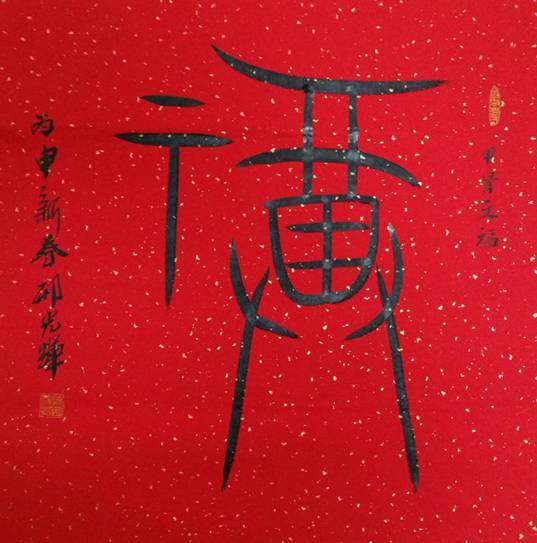 甲骨文福
福
丙申新春邢光辉